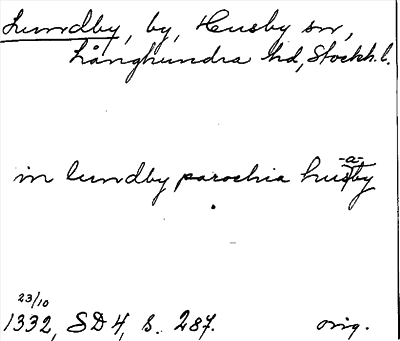 Lundby, by, Husby sn,
Långhundra hd, Stockh. l.
in lundby parochia husby
-a-
23/10
1332, SD 4, s. 287. orig.